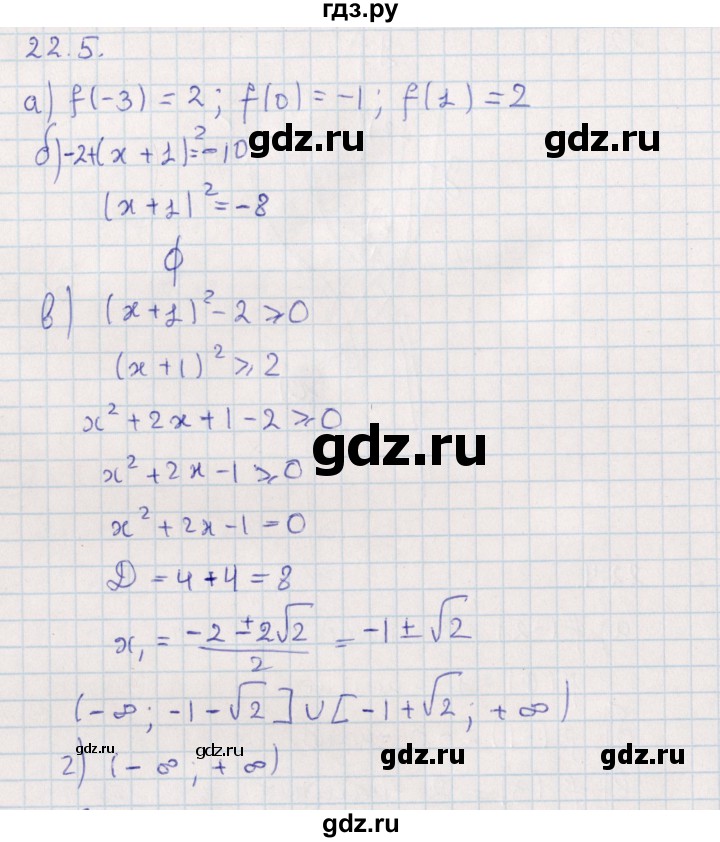 гдз.ру
22.5.
а) f(-3) = 2; f(0) = -1; f(1) = 2
gdz.ru gdz.ru
б) -2+(x+1)² = -10
(x+1)² = -8
ϕ
в) (x+1)² - 2 ⩾ 0
(x+1)² ⩾ 2
x² + 2x + 1 - 2 ⩾ 0
gdz.ru
x² + 2x - 1 ⩾ 0
x² + 2x - 1 = 0
D = 4 + 4 = 8
x₁ = (-2 ± 2√2)/2 = -1 ± √2
(-∞; -1-√2] ∪ [-1+√2; +∞)
gdz.ru gdz.ru gdz.ru gdz.ru
г) (-∞; +∞)
gdz.ru